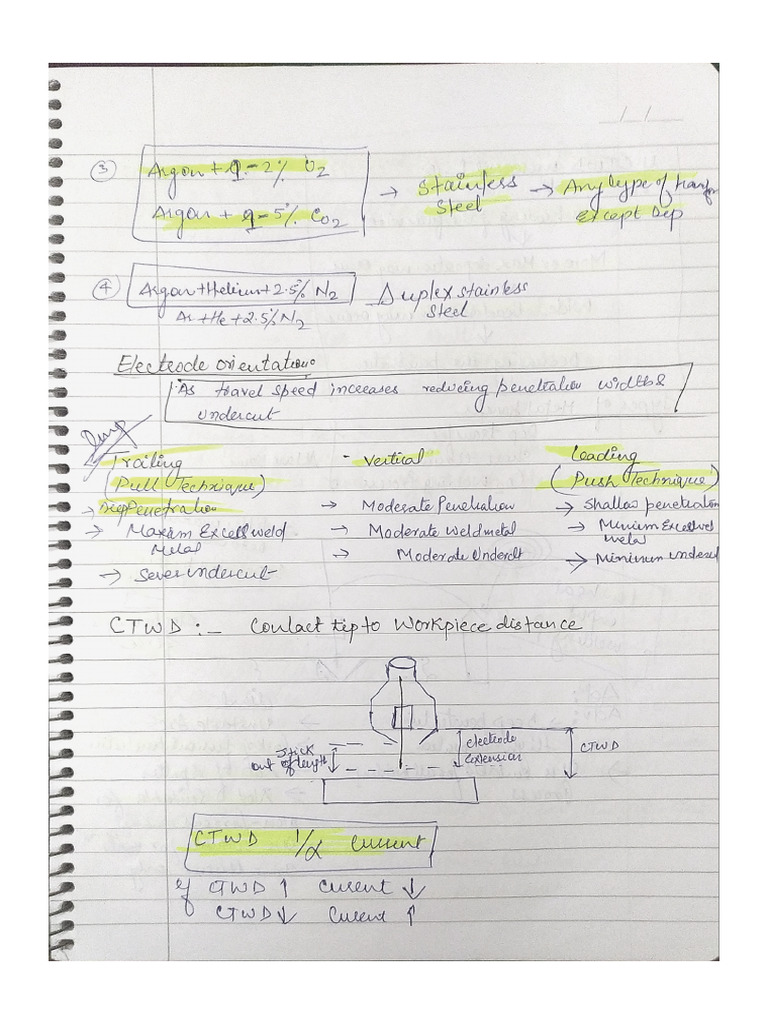 ③ Argon + 1-2% O2
Argon + 1-5% CO2
→ Stainless Steel → Any type of transfer Except Dip
④ Argon + Helium + 2.5% N2 Duplex stainless steel
Ar + He + 2.5% N2
Electrode orientation:
As travel speed increases reducing penetration width &
undercut
Imp
Trailing - Vertical Leading
(Pull Technique) (Push Technique)
→ Deep Penetration → Moderate Penetration → Shallow penetration
→ Maxium Excess weld metal → Moderate Weld metal → Minium Excess metal
→ Sever undercut → Moderate Undercut → Minimum undercut
CTWD :- Contact tip to Workpiece distance
Stick out of length electrode extension CTWD
CTWD 1/α Current
If CTWD ↑ Current ↓
CTWD ↓ Current ↑